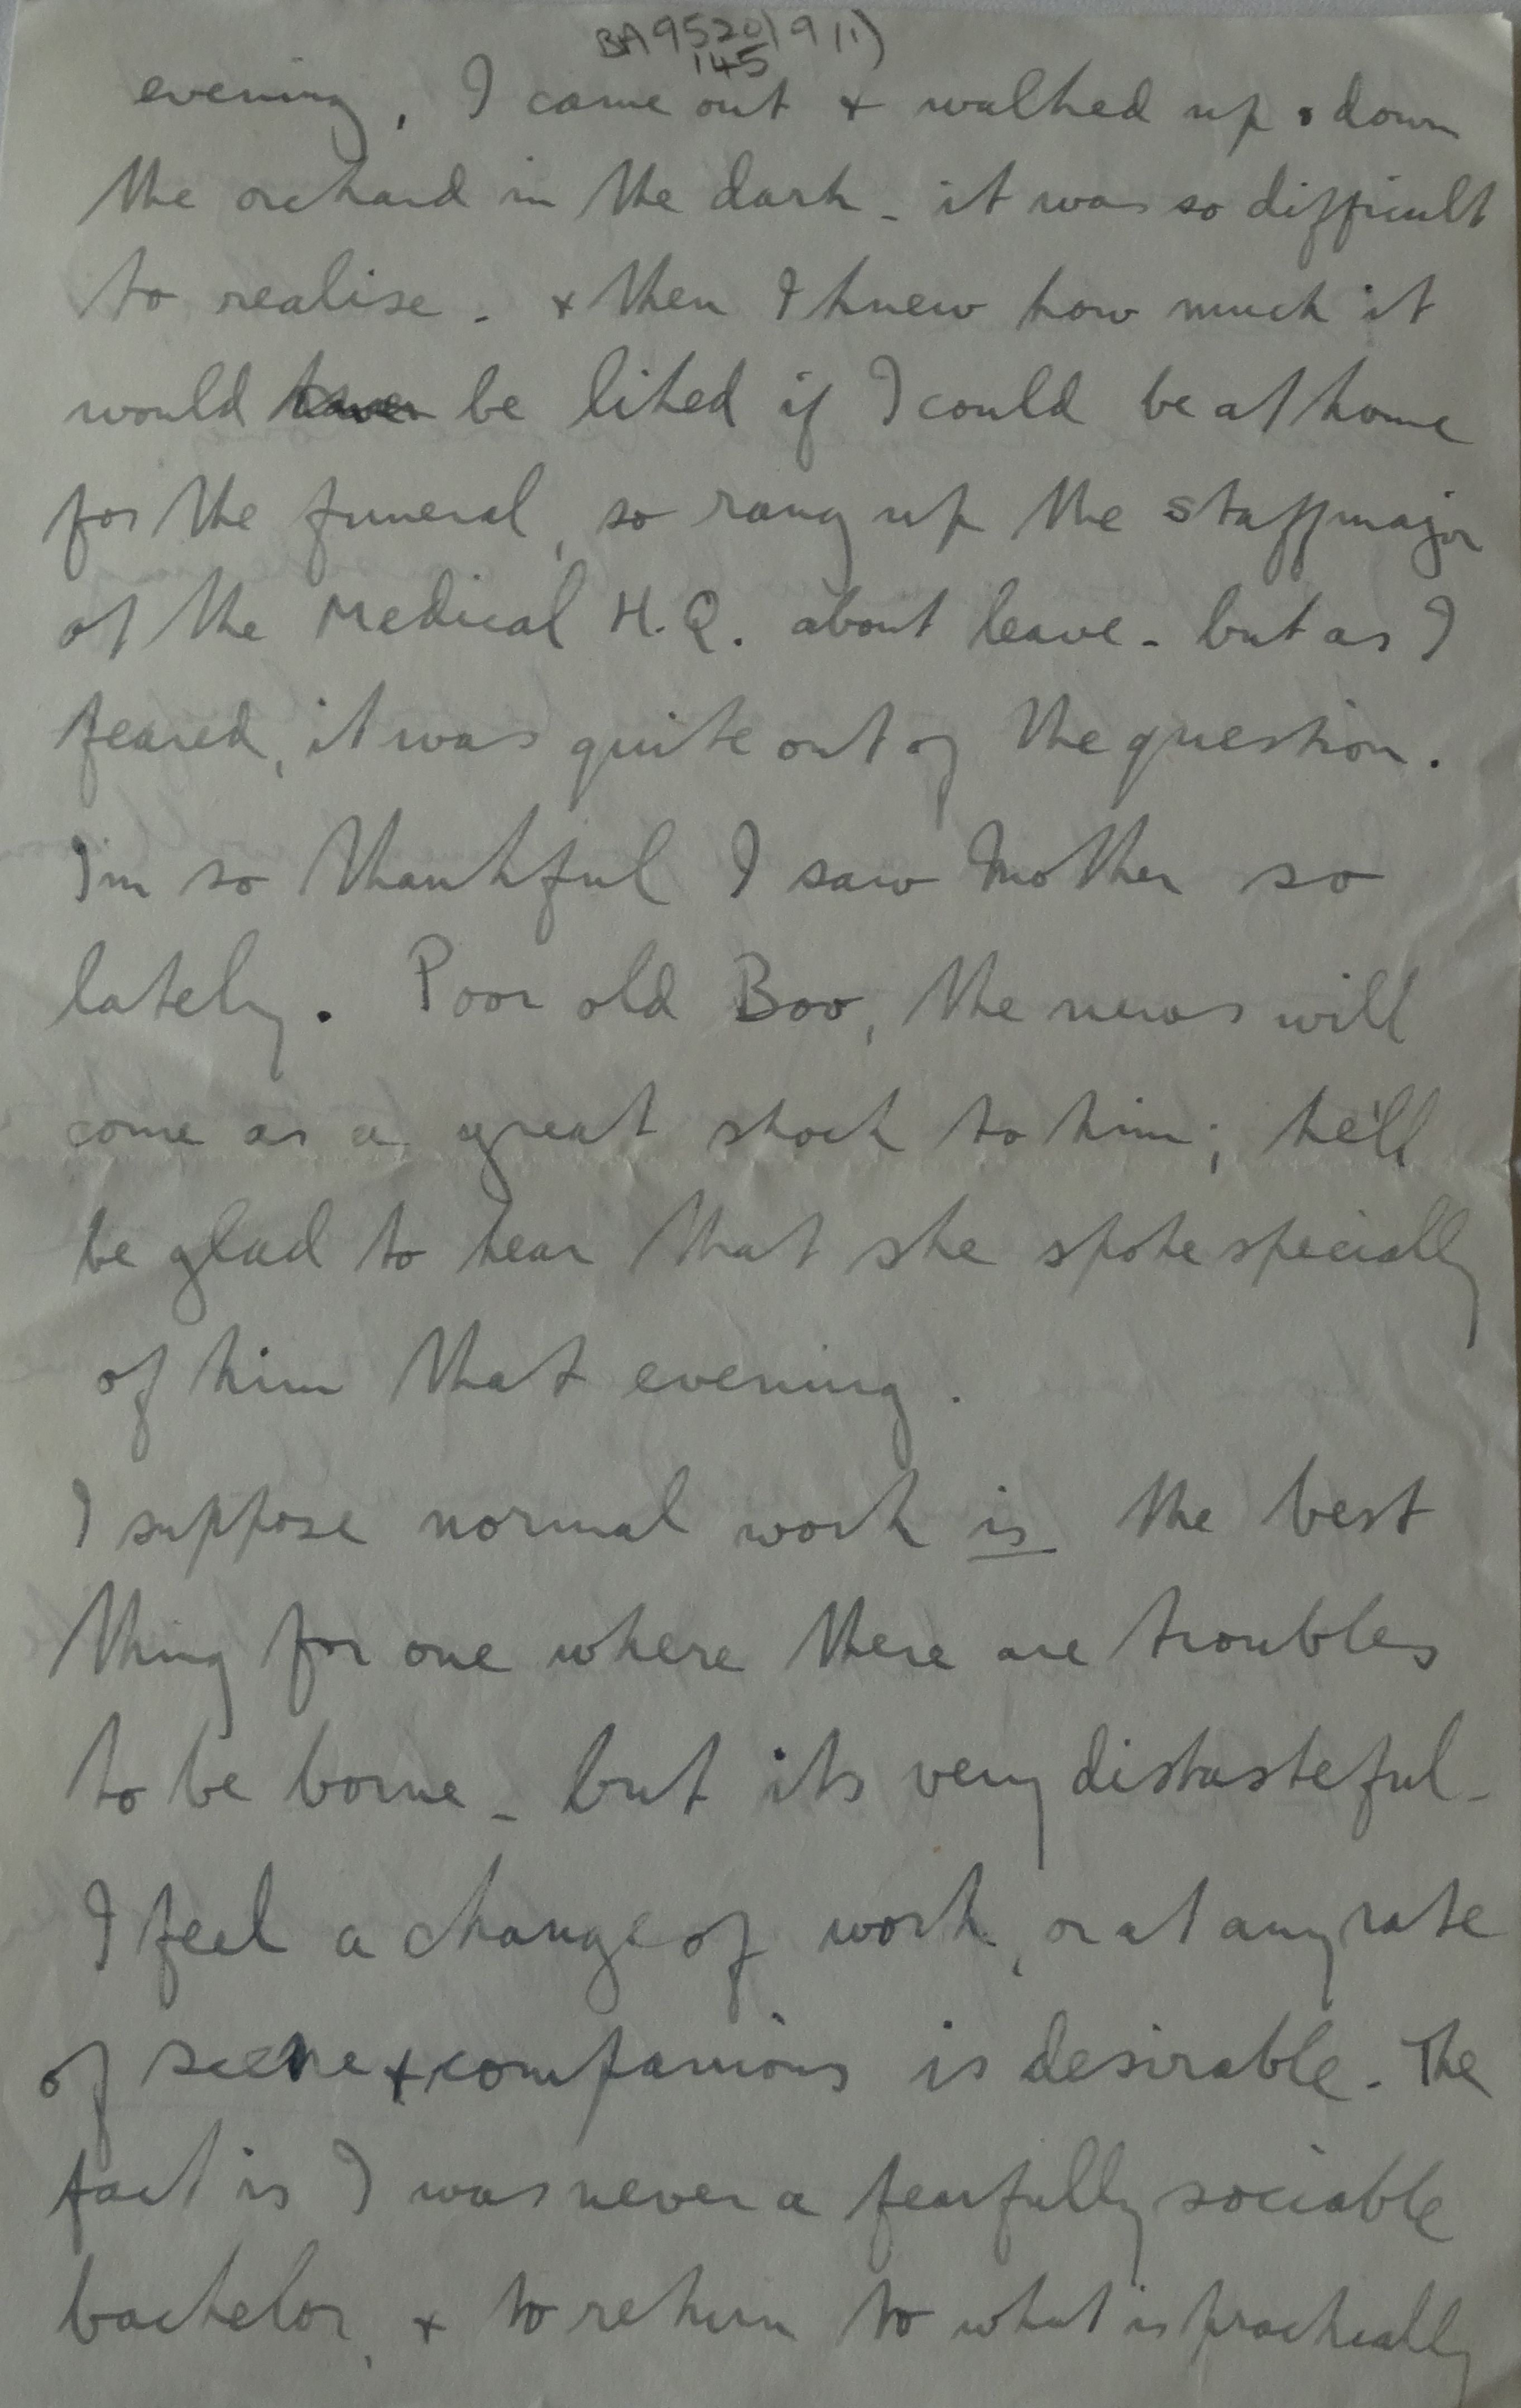 BA9520/9(1)
145
evening, I came out + walked up + down
the orchard in the dark - it was so difficult
to realise - + then I knew how much it
would have be liked if I could be at home
for the funeral, so rang up the staff major
at the Medical H.Q. about leave - but as I
feared, it was quite out of the question.
I'm so thankful I saw Mother so
lately. Poor old Boo, the news will
come as a great shock to him; he'll
be glad to hear that she spoke specially
of him that evening.
I suppose normal work is the best
thing for one where there are troubles
to be borne - but its very distasteful -
I feel a change of work, or at any rate
of scene + companions is desirable. The
fact is I was never a fearfully sociable
bachelor, + to return to what is practically